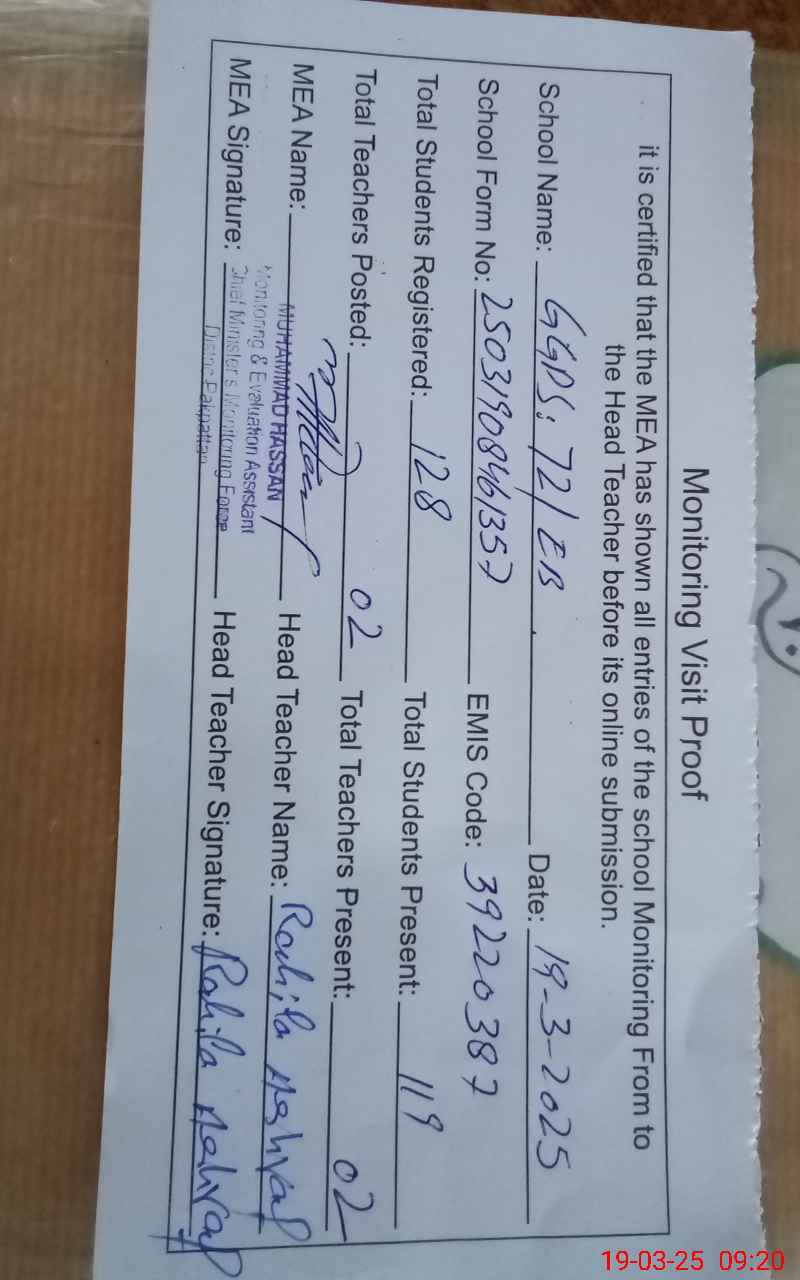 Monitoring Visit Proof
it is certified that the MEA has shown all entries of the school Monitoring From to
the Head Teacher before its online submission.
School Name: GGPS; 72/EB Date: 19-3-2025
School Form No: 25031908461357 EMIS Code: 39220387
Total Students Registered: 128 Total Students Present: 119
Total Teachers Posted: 02 Total Teachers Present: 02
MEA Name: MUHAMMAD HASSAN Head Teacher Name: Rahila
Monitoring & Evaluation Assistant
MEA Signature: Chief Minister's Monitoring Force Head Teacher Signature: Rahila
District Pakpattan
19-03-25 09:20